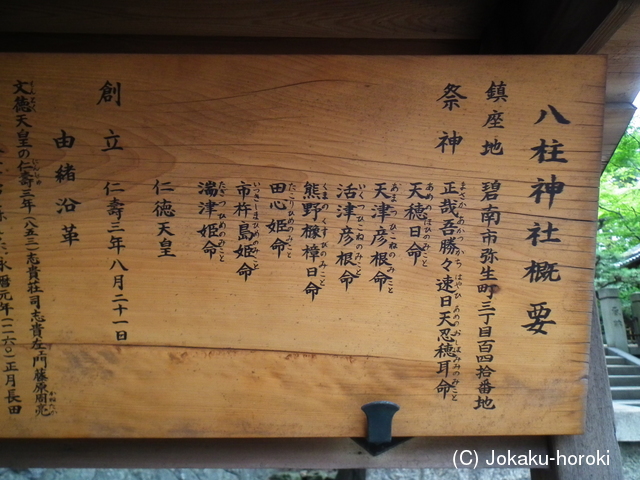 八柱神社概要
鎮座地 碧南市弥生町三丁目百四拾番地
祭神 正哉吾勝々速日天忍穂耳命
天穂日命
天津彦根命
活津彦根命
熊野櫲樟日命
田心姫命
市杵島姫命
湍津姫命
仁徳天皇
創立 仁壽三年八月二十一日
由緒沿革
文徳天皇の仁壽三年(八五三)志貴荘司志貴左衛門藤原周亮
永暦元年(一一六〇)正月長田
(C) Jokaku-horoki